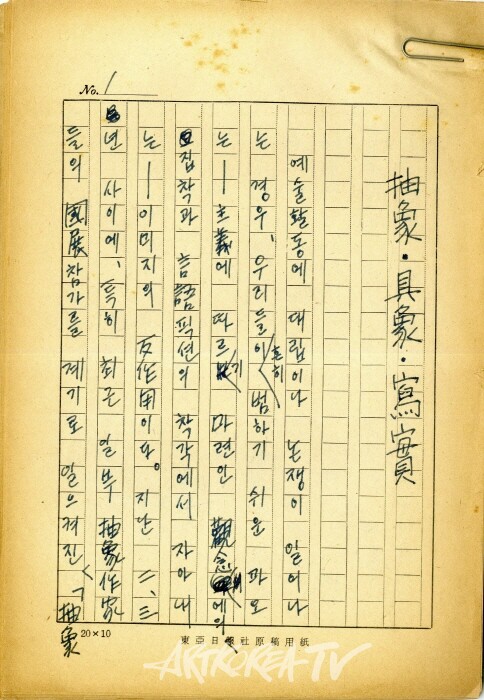 No. 1
抽象·具象·寫實
예술활동에 대립이나 논쟁이 일어나
는 경우, 우리들이 흔히 범하기 쉬운 과오
는―主義에 따르기 마련인 觀念에의
집착과 言語픽션의 착각에서 자아내
는―이미지의 反作用이다。 지난 二、三
년 사이에, 특히 최근 일부 抽象作家
들의 國展참가를 계기로 일으켜진 「抽象
20×10
東亞日報社原稿用紙
ARTKOREA TV